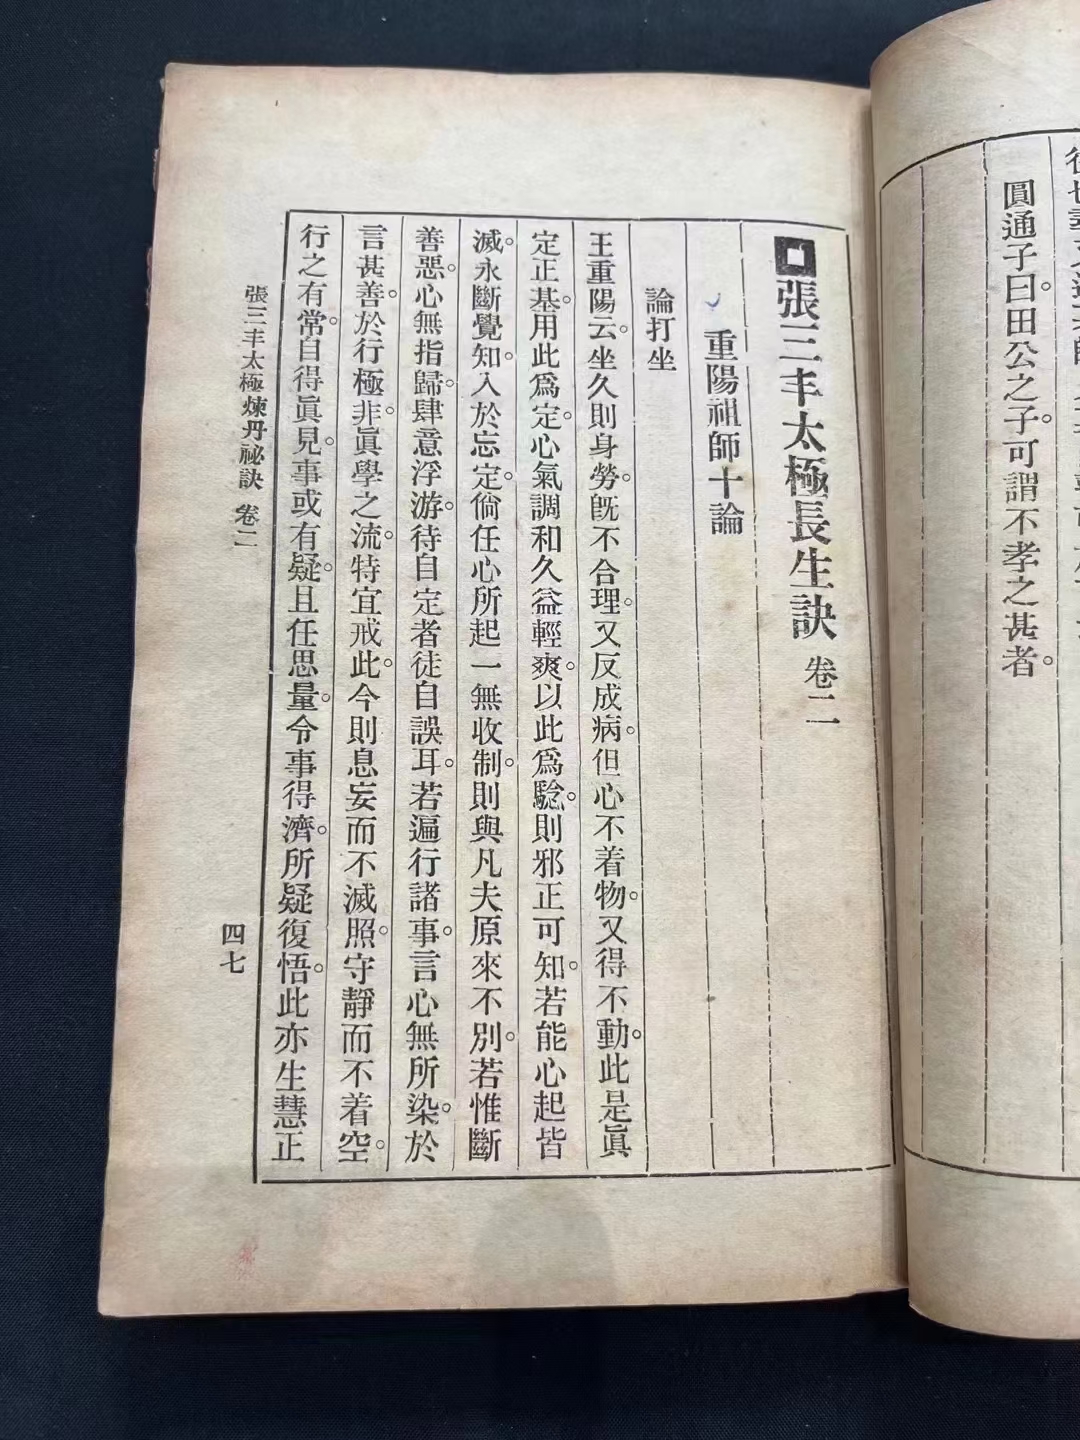 圓通子曰。田公之子。可謂不孝之甚者。
張三丰太極長生訣 卷二
重陽祖師十論
論打坐
王重陽云。坐久則身勞。旣不合理。又反成病。但心不着物。又得不動。此是眞
定正基。用此爲定。心氣調和。久益輕爽。以此爲驗。則邪正可知。若能心起皆
滅。永斷覺知。入於忘定。倘任心所起。一無收制。則與凡夫原來不別。若惟斷
善惡。心無指歸。肆意浮游。待自定者。徒自誤耳。若遍行諸事。言心無所染。於
言甚善。於行極非。眞學之流。特宜戒此。今則息妄而不滅照。守靜而不着空。
行之有常。自得眞見。事或有疑。且任思量。令事得濟。所疑復悟。此亦生慧正
張三丰太極煉丹祕訣 卷二
四七